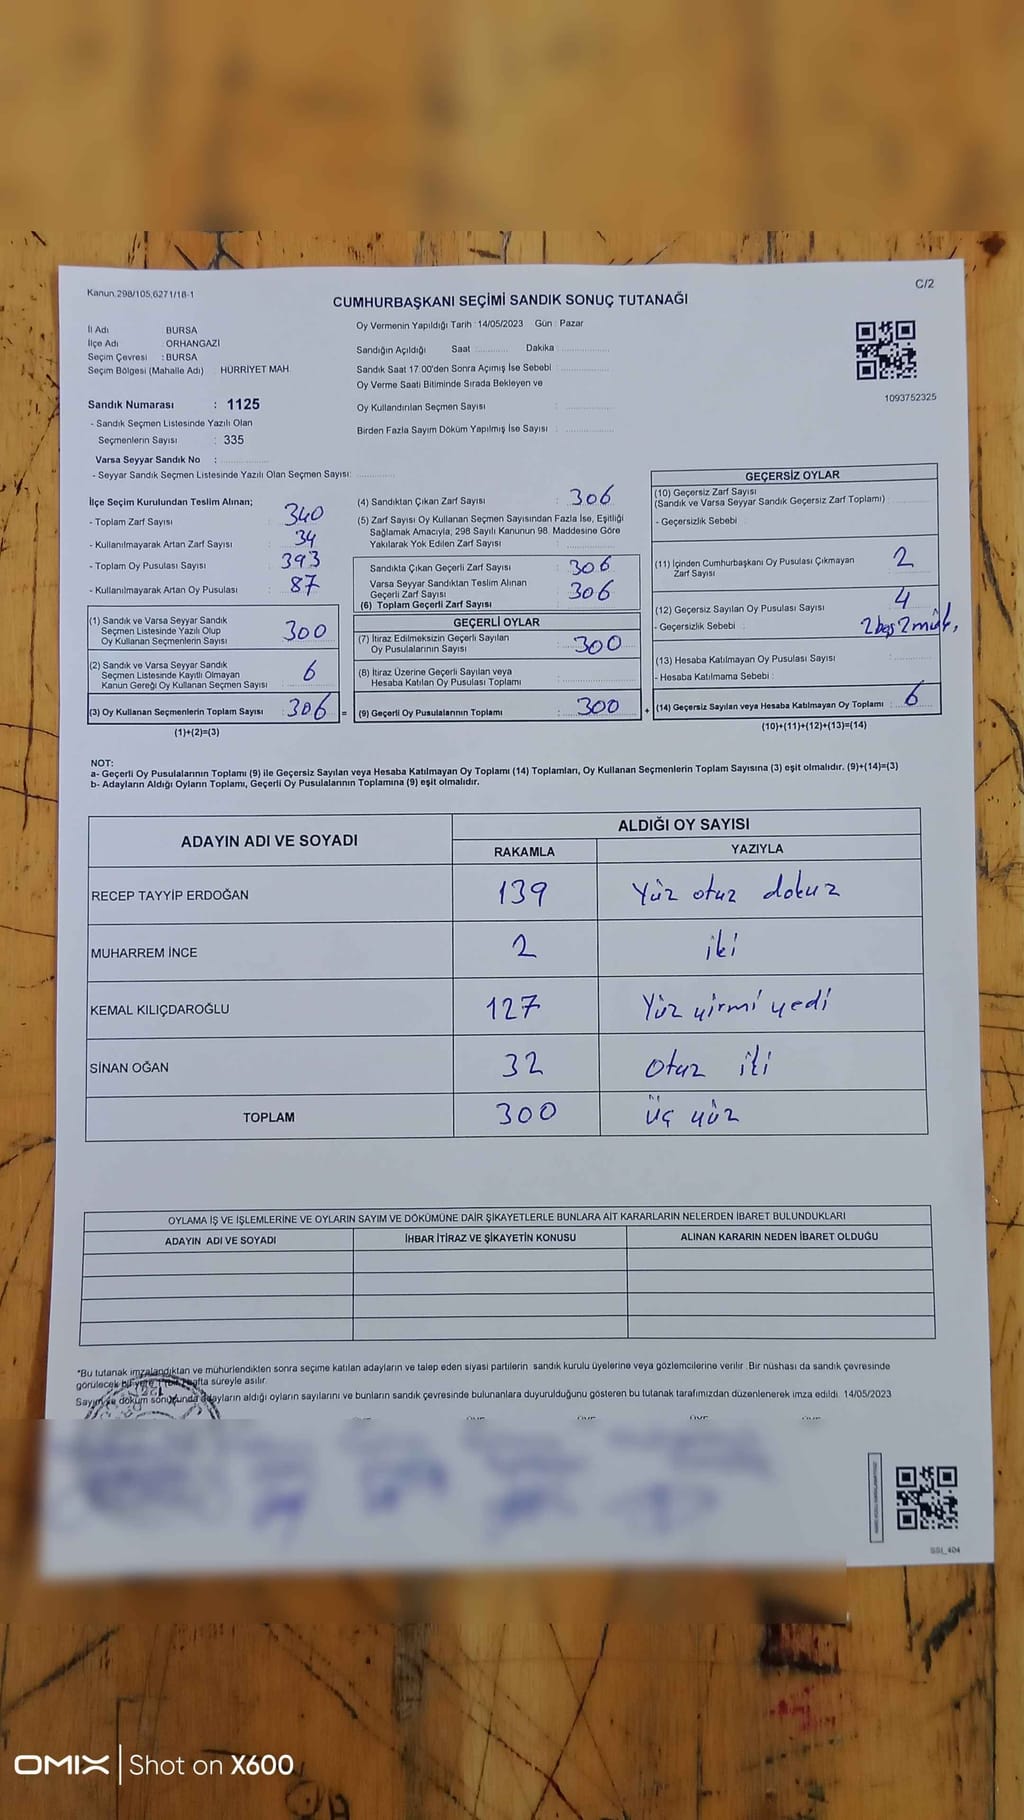 Kanun,298/105,6271/18-1
C/2
CUMHURBAŞKANI SEÇİMİ SANDIK SONUÇ TUTANAĞI
İl Adı BURSA
İlçe Adı : ORHANGAZİ
Seçim Çevresi : BURSA
Seçim Bölgesi (Mahalle Adı) : HÜRRİYET MAH.
Oy Vermenin Yapıldığı Tarih : 14/05/2023 Gün : Pazar
Sandığın Açıldığı Saat Dakika
Sandık Saat 17.00'den Sonra Açımış İse Sebebi
Oy Verme Saati Bitiminde Sırada Bekleyen ve
Oy Kullandırılan Seçmen Sayısı :
Birden Fazla Sayım Döküm Yapılmış İse Sayısı :
1093752325
Sandık Numarası : 1125
- Sandık Seçmen Listesinde Yazılı Olan
Seçmenlerin Sayısı : 335
Varsa Seyyar Sandık No :
- Seyyar Sandık Seçmen Listesinde Yazılı Olan Seçmen Sayısı:
İlçe Seçim Kurulundan Teslim Alınan;
- Toplam Zarf Sayısı : 340
- Kullanılmayarak Artan Zarf Sayısı : 34
- Toplam Oy Pusulası Sayısı : 393
- Kullanılmayarak Artan Oy Pusulası : 87
(1) Sandık ve Varsa Seyyar Sandık
Seçmen Listesinde Yazılı Olup
Oy Kullanan Seçmenlerin Sayısı : 300
(2) Sandık ve Varsa Seyyar Sandık
Seçmen Listesinde Kayıtlı Olmayan
Kanun Gereği Oy Kullanan Seçmen Sayısı : 6
(3) Oy Kullanan Seçmenlerin Toplam Sayısı : 306 =
(1)+(2)=(3)
(4) Sandıktan Çıkan Zarf Sayısı : 306
(5) Zarf Sayısı Oy Kullanan Seçmen Sayısından Fazla İse, Eşitliği
Sağlamak Amacıyla, 298 Sayılı Kanunun 98. Maddesine Göre
Yakılarak Yok Edilen Zarf Sayısı :
Sandıkta Çıkan Geçerli Zarf Sayısı : 306
Varsa Seyyar Sandıktan Teslim Alınan
Geçerli Zarf Sayısı : 306
(6) Toplam Geçerli Zarf Sayısı
GEÇERLİ OYLAR
(7) İtiraz Edilmeksizin Geçerli Sayılan
Oy Pusulalarının Sayısı : 300
(8) İtiraz Üzerine Geçerli Sayılan veya
Hesaba Katılan Oy Pusulası Toplamı :
(9) Geçerli Oy Pusulalarının Toplamı : 300 +
GEÇERSİZ OYLAR
(10) Geçersiz Zarf Sayısı
(Sandık ve Varsa Seyyar Sandık Geçersiz Zarf Toplamı)
- Geçersizlik Sebebi :
(11) İçinden Cumhurbaşkanı Oy Pusulası Çıkmayan
Zarf Sayısı : 2
(12) Geçersiz Sayılan Oy Pusulası Sayısı : 4
- Geçersizlik Sebebi : 2 boş 2
(13) Hesaba Katılmayan Oy Pusulası Sayısı :
- Hesaba Katılmama Sebebi :
(14) Geçersiz Sayılan veya Hesaba Katılmayan Oy Toplamı : 6
(10)+(11)+(12)+(13)=(14)
NOT:
a- Geçerli Oy Pusulalarının Toplamı (9) ile Geçersiz Sayılan veya Hesaba Katılmayan Oy Toplamı (14) Toplamları, Oy Kullanan Seçmenlerin Toplam Sayısına (3) eşit olmalıdır. (9)+(14)=(3)
b- Adayların Aldığı Oyların Toplamı, Geçerli Oy Pusulalarının Toplamına (9) eşit olmalıdır.
ADAYIN ADI VE SOYADI ALDIĞI OY SAYISI
RAKAMLA YAZIYLA
RECEP TAYYİP ERDOĞAN 139 Yüz otuz dokuz
MUHARREM İNCE 2 iki
KEMAL KILIÇDAROĞLU 127 Yüz yirmi yedi
SİNAN OĞAN 32 otuz iki
TOPLAM 300 üç yüz
OYLAMA İŞ VE İŞLEMLERİNE VE OYLARIN SAYIM VE DÖKÜMÜNE DAİR ŞİKAYETLERLE BUNLARA AİT KARARLARIN NELERDEN İBARET BULUNDUKLARI
ADAYIN ADI VE SOYADI İHBAR İTİRAZ VE ŞİKAYETİN KONUSU ALINAN KARARIN NEDEN İBARET OLDUĞU
*Bu tutanak imzalandıktan ve mühürlendikten sonra seçime katılan adayların ve talep eden siyasi partilerin sandık kurulu üyelerine veya gözlemcilerine verilir. Bir nüshası da sandık çevresinde
görülecek bir yere 1 (bir) hafta süreyle asılır.
Sayım ve döküm sonucunda adayların aldığı oyların sayılarını ve bunların sandık çevresinde bulunanlara duyurulduğunu gösteren bu tutanak tarafımızdan düzenlenerek imza edildi. 14/05/2023
SSI_404
OMIX | Shot on X600